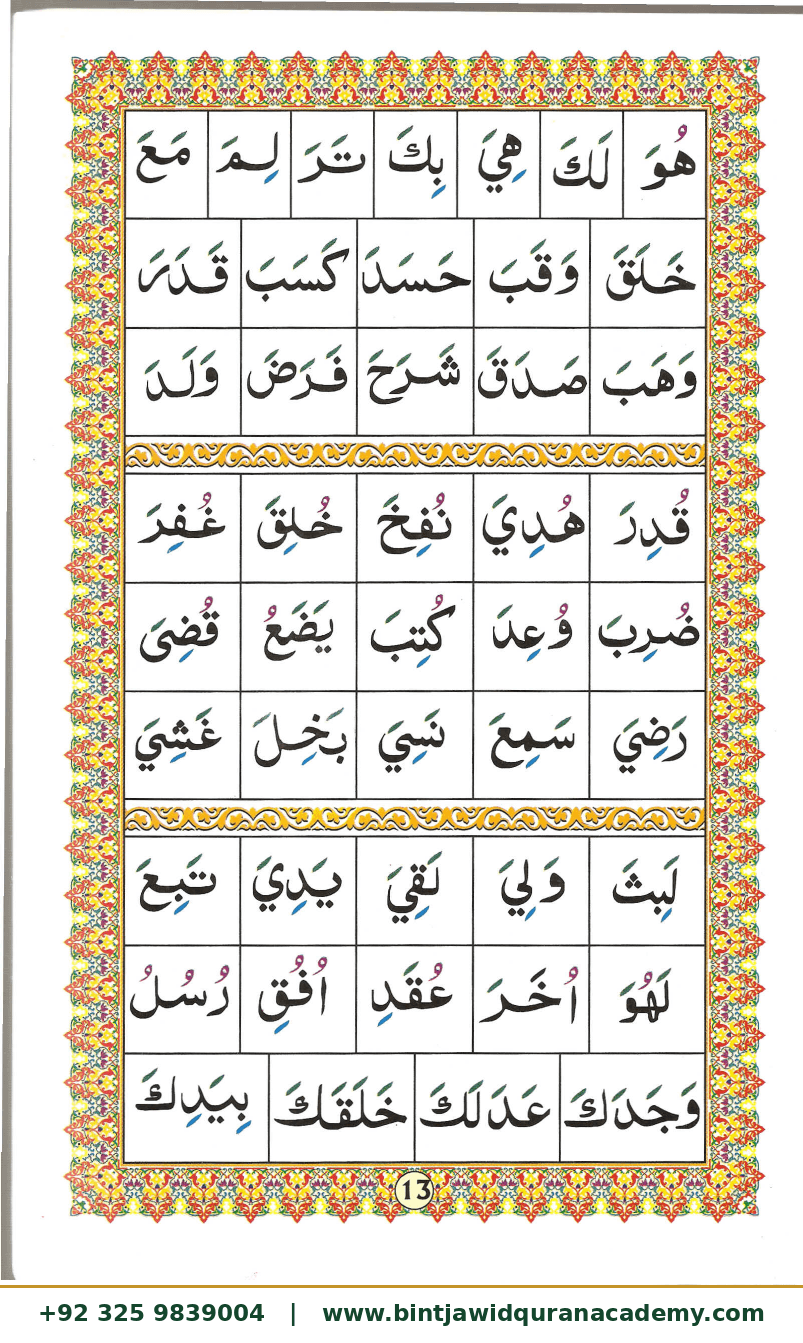 هُوَ لَكَ هِيَ بِكَ تَرَ لِمَ مَعَ
خَلَقَ وَقَبَ حَسَدَ كَسَبَ قَدَرَ
وَهَبَ صَدَقَ شَرَحَ فَرَضَ وَلَدَ
قُدِرَ هُدِيَ نُفِخَ خُلِقَ غُفِرَ
ضُرِبَ وُعِدَ كُتِبَ يَضَعُ قُضِىَ
رَضِيَ سَمِعَ نَسِيَ بَخِلَ غَشِيَ
لَبِثَ وَلِيَ لَقِيَ يَدِيَ تَبِعَ
لَهُوَ اُخَرَ عُقَدِ اُفُقِ رُسُلُ
وَجَدَكَ عَدَلَكَ خَلَقَكَ بِيَدِكَ
13
+92 325 9839004 | www.bintjawidquranacademy.com